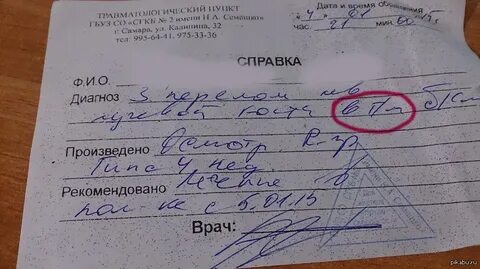 ТРАВМАТОЛОГИЧЕСКИЙ ПУНКТ
ГБУЗ СО «СГКБ № 2 имени Н.А. Семашко»
г. Самара, ул. Калинина, 32
тел: 995-64-41, 975-33-36
Дата и время обращения
час. 21 мин.
СПРАВКА
Ф.И.О.
Диагноз З перелом лев
лучевой кости в Пл б/см
Произведено Осмотр R-гр
Гипс 4 нед
Рекомендовано Лечение в
пол-ке с 5.01.15
Врач:
pikabu.ru